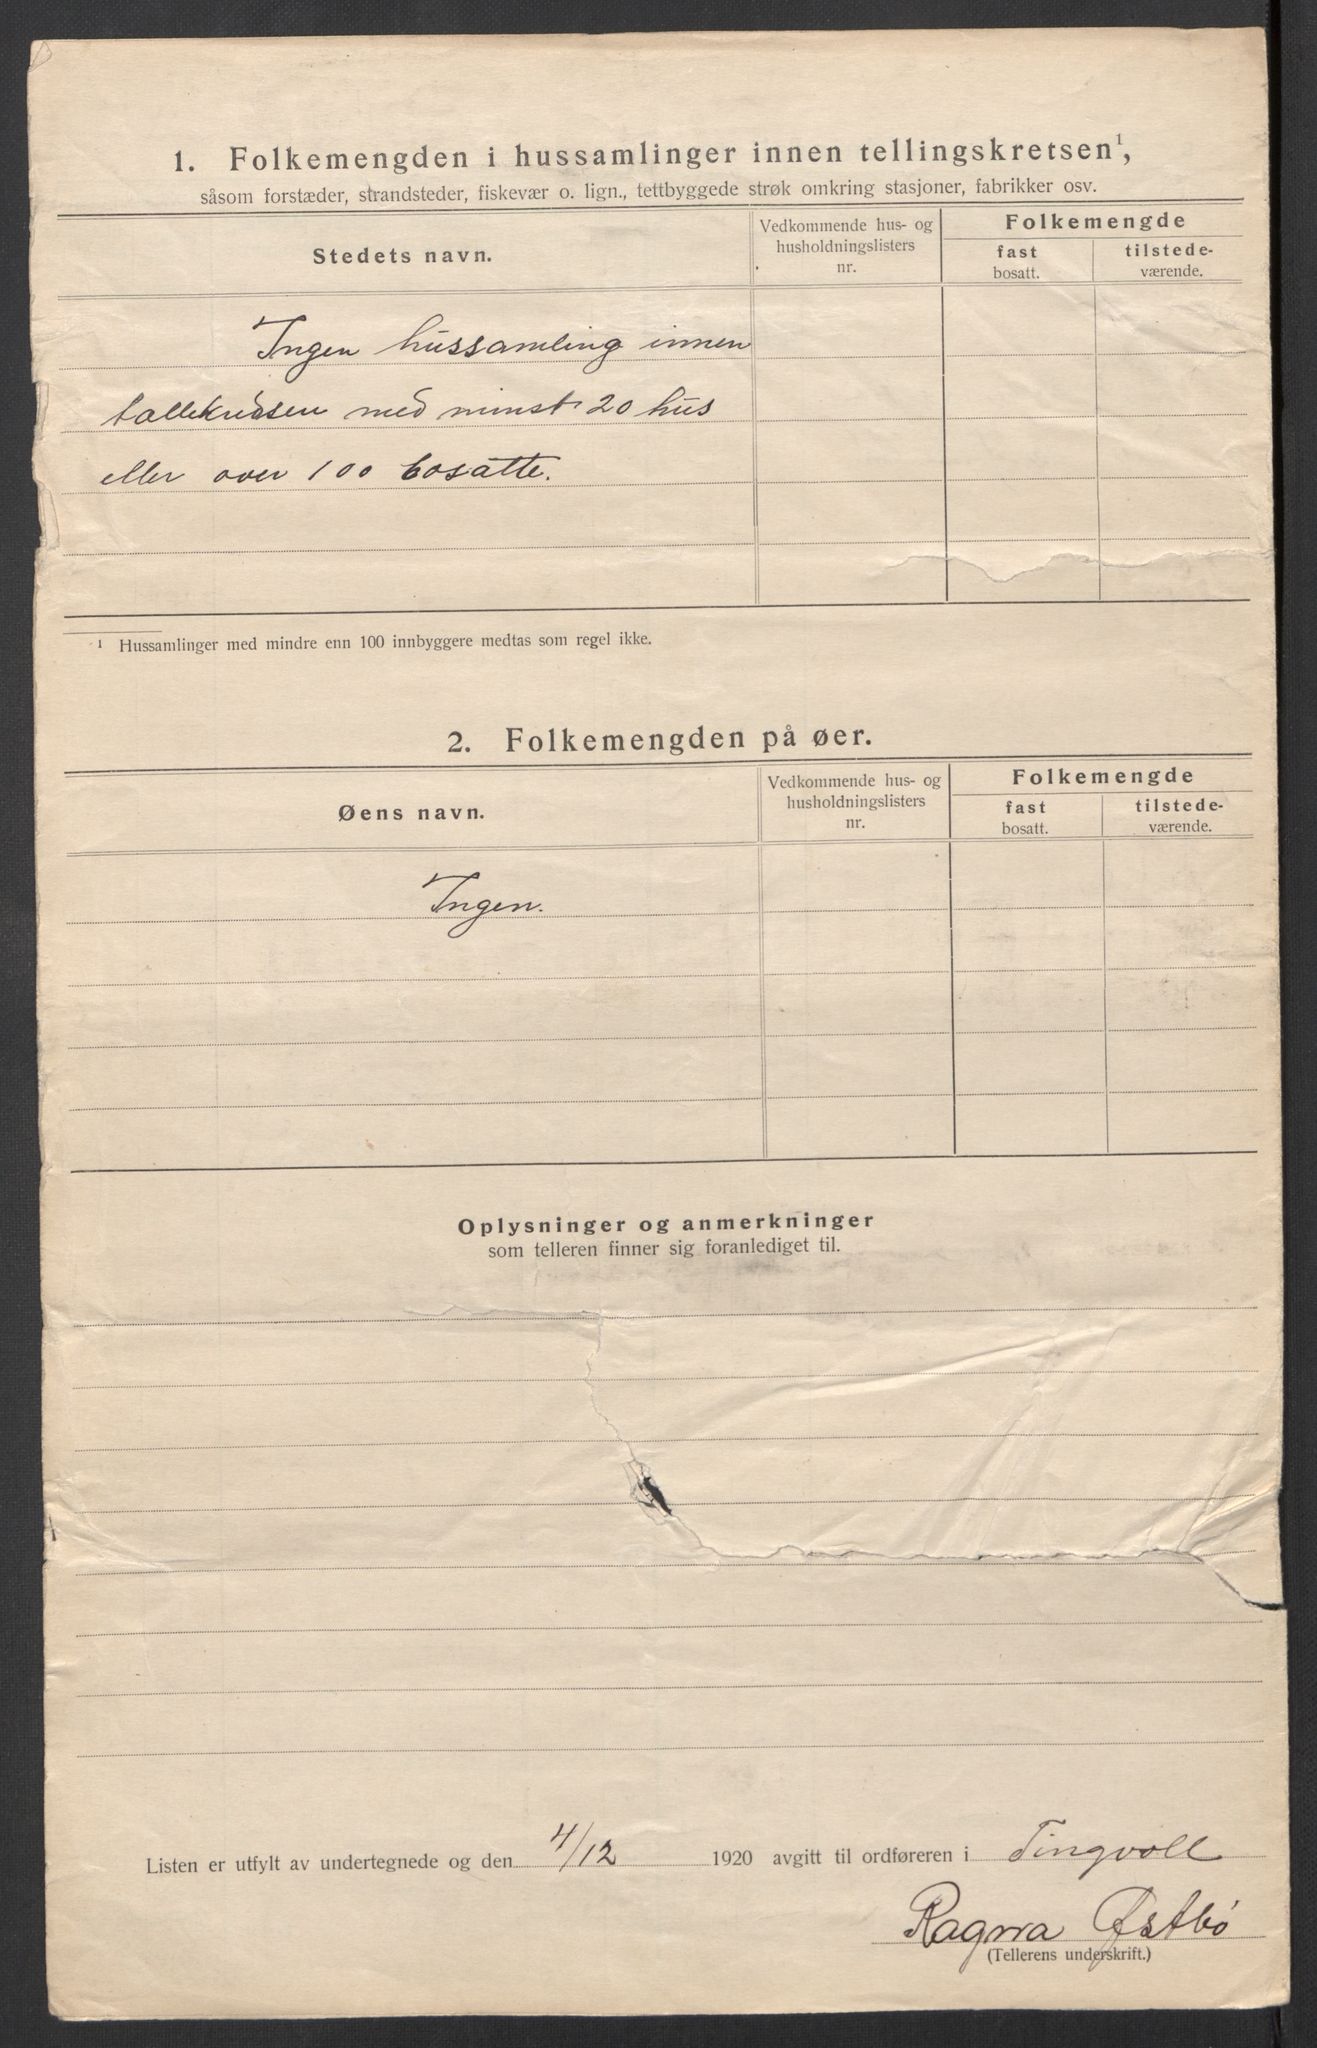 1. Folkemengden i hussamlinger innen tellingskretsen¹,
såsom forstæder, strandsteder, fiskevær o. lign., tettbyggede strøk omkring stasjoner, fabrikker osv.
Stedets navn.
Vedkommende hus- og
husholdningslisters
nr.
Folkemengde
fast
bosatt.
tilstede-
værende.
Ingen hussamling innen
tællekredsen med minst 20 hus
eller over 100 bosatte.
¹ Hussamlinger med mindre enn 100 innbyggere medtas som regel ikke.
2. Folkemengden på øer.
Øens navn.
Vedkommende hus- og
husholdningslisters
nr.
Folkemengde
fast
bosatt.
tilstede-
værende.
Ingen.
Oplysninger og anmerkninger
som telleren finner sig foranlediget til.
Listen er utfylt av undertegnede og den 4/12 1920 avgitt til ordføreren i Tingvoll
Ragna Østbø
(Tellerens underskrift.)